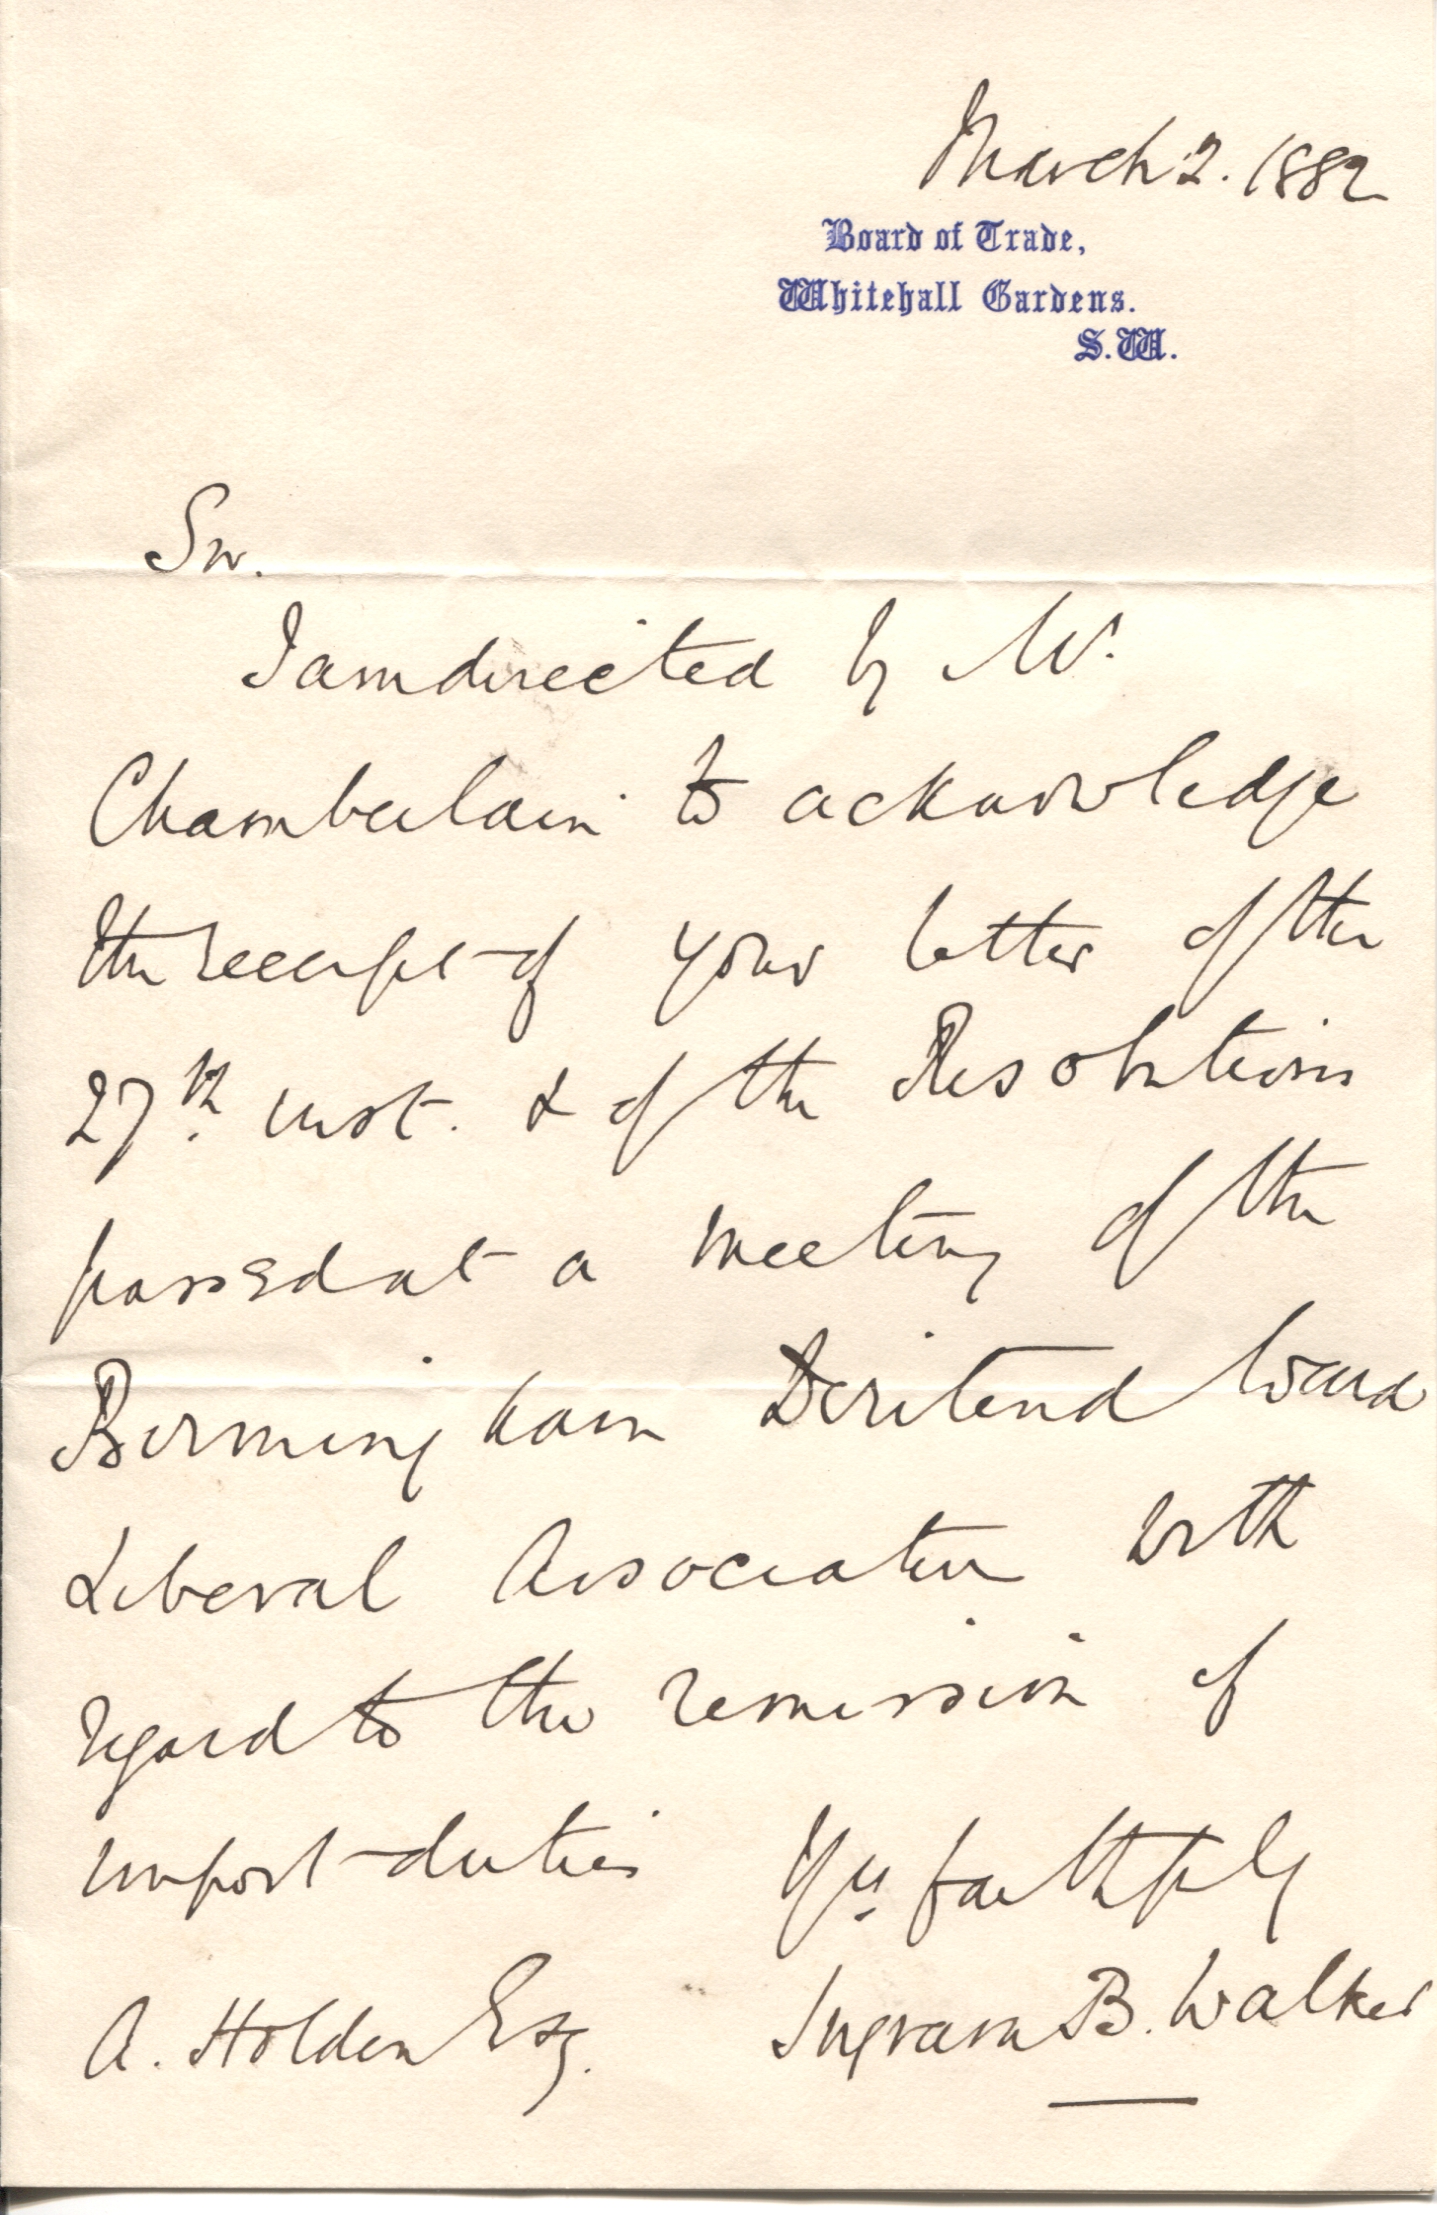 March 2. 1882
Board of Trade,
Whitehall Gardens.
S.W.
Sir.
I am directed by Mr.
Chamberlain to acknowledge
the receipt of your letter of the
27th. inst. & of the Resolutions
passed at a meeting of the
Birmingham Deritend Ward
Liberal Association with
regard to the remission of
import-duties
Yrs faithfully
A. Holden Esq.
Ingram B. Walker